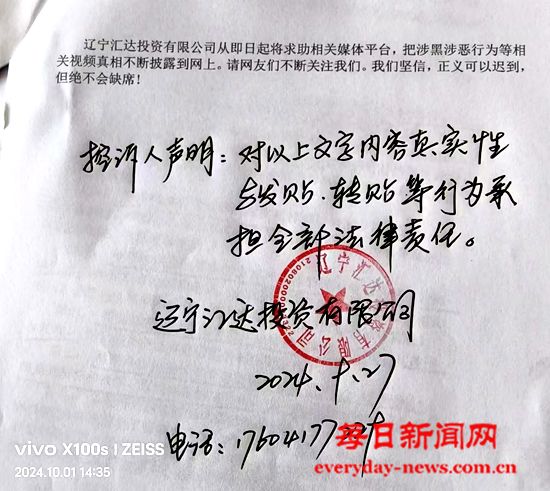 辽宁汇达投资有限公司从即日起将求助相关媒体平台，把涉黑涉恶行为等相
关视频真相不断披露到网上。请网友们不断关注我们。我们坚信，正义可以迟到，
但绝不会缺席！
控诉人声明：对以上文字内容真实性
与发贴、转贴等行为承
担全部法律责任。
辽宁汇达投资有限公司
辽宁汇达投资有限公司
2024.
电话：
vivo X100s | ZEISS
2024.10.01 14:35
每日新闻网
everyday-news.com.cn